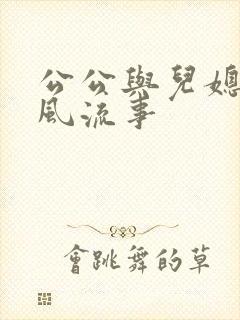 公公與兒媳
風流事
會跳舞的草